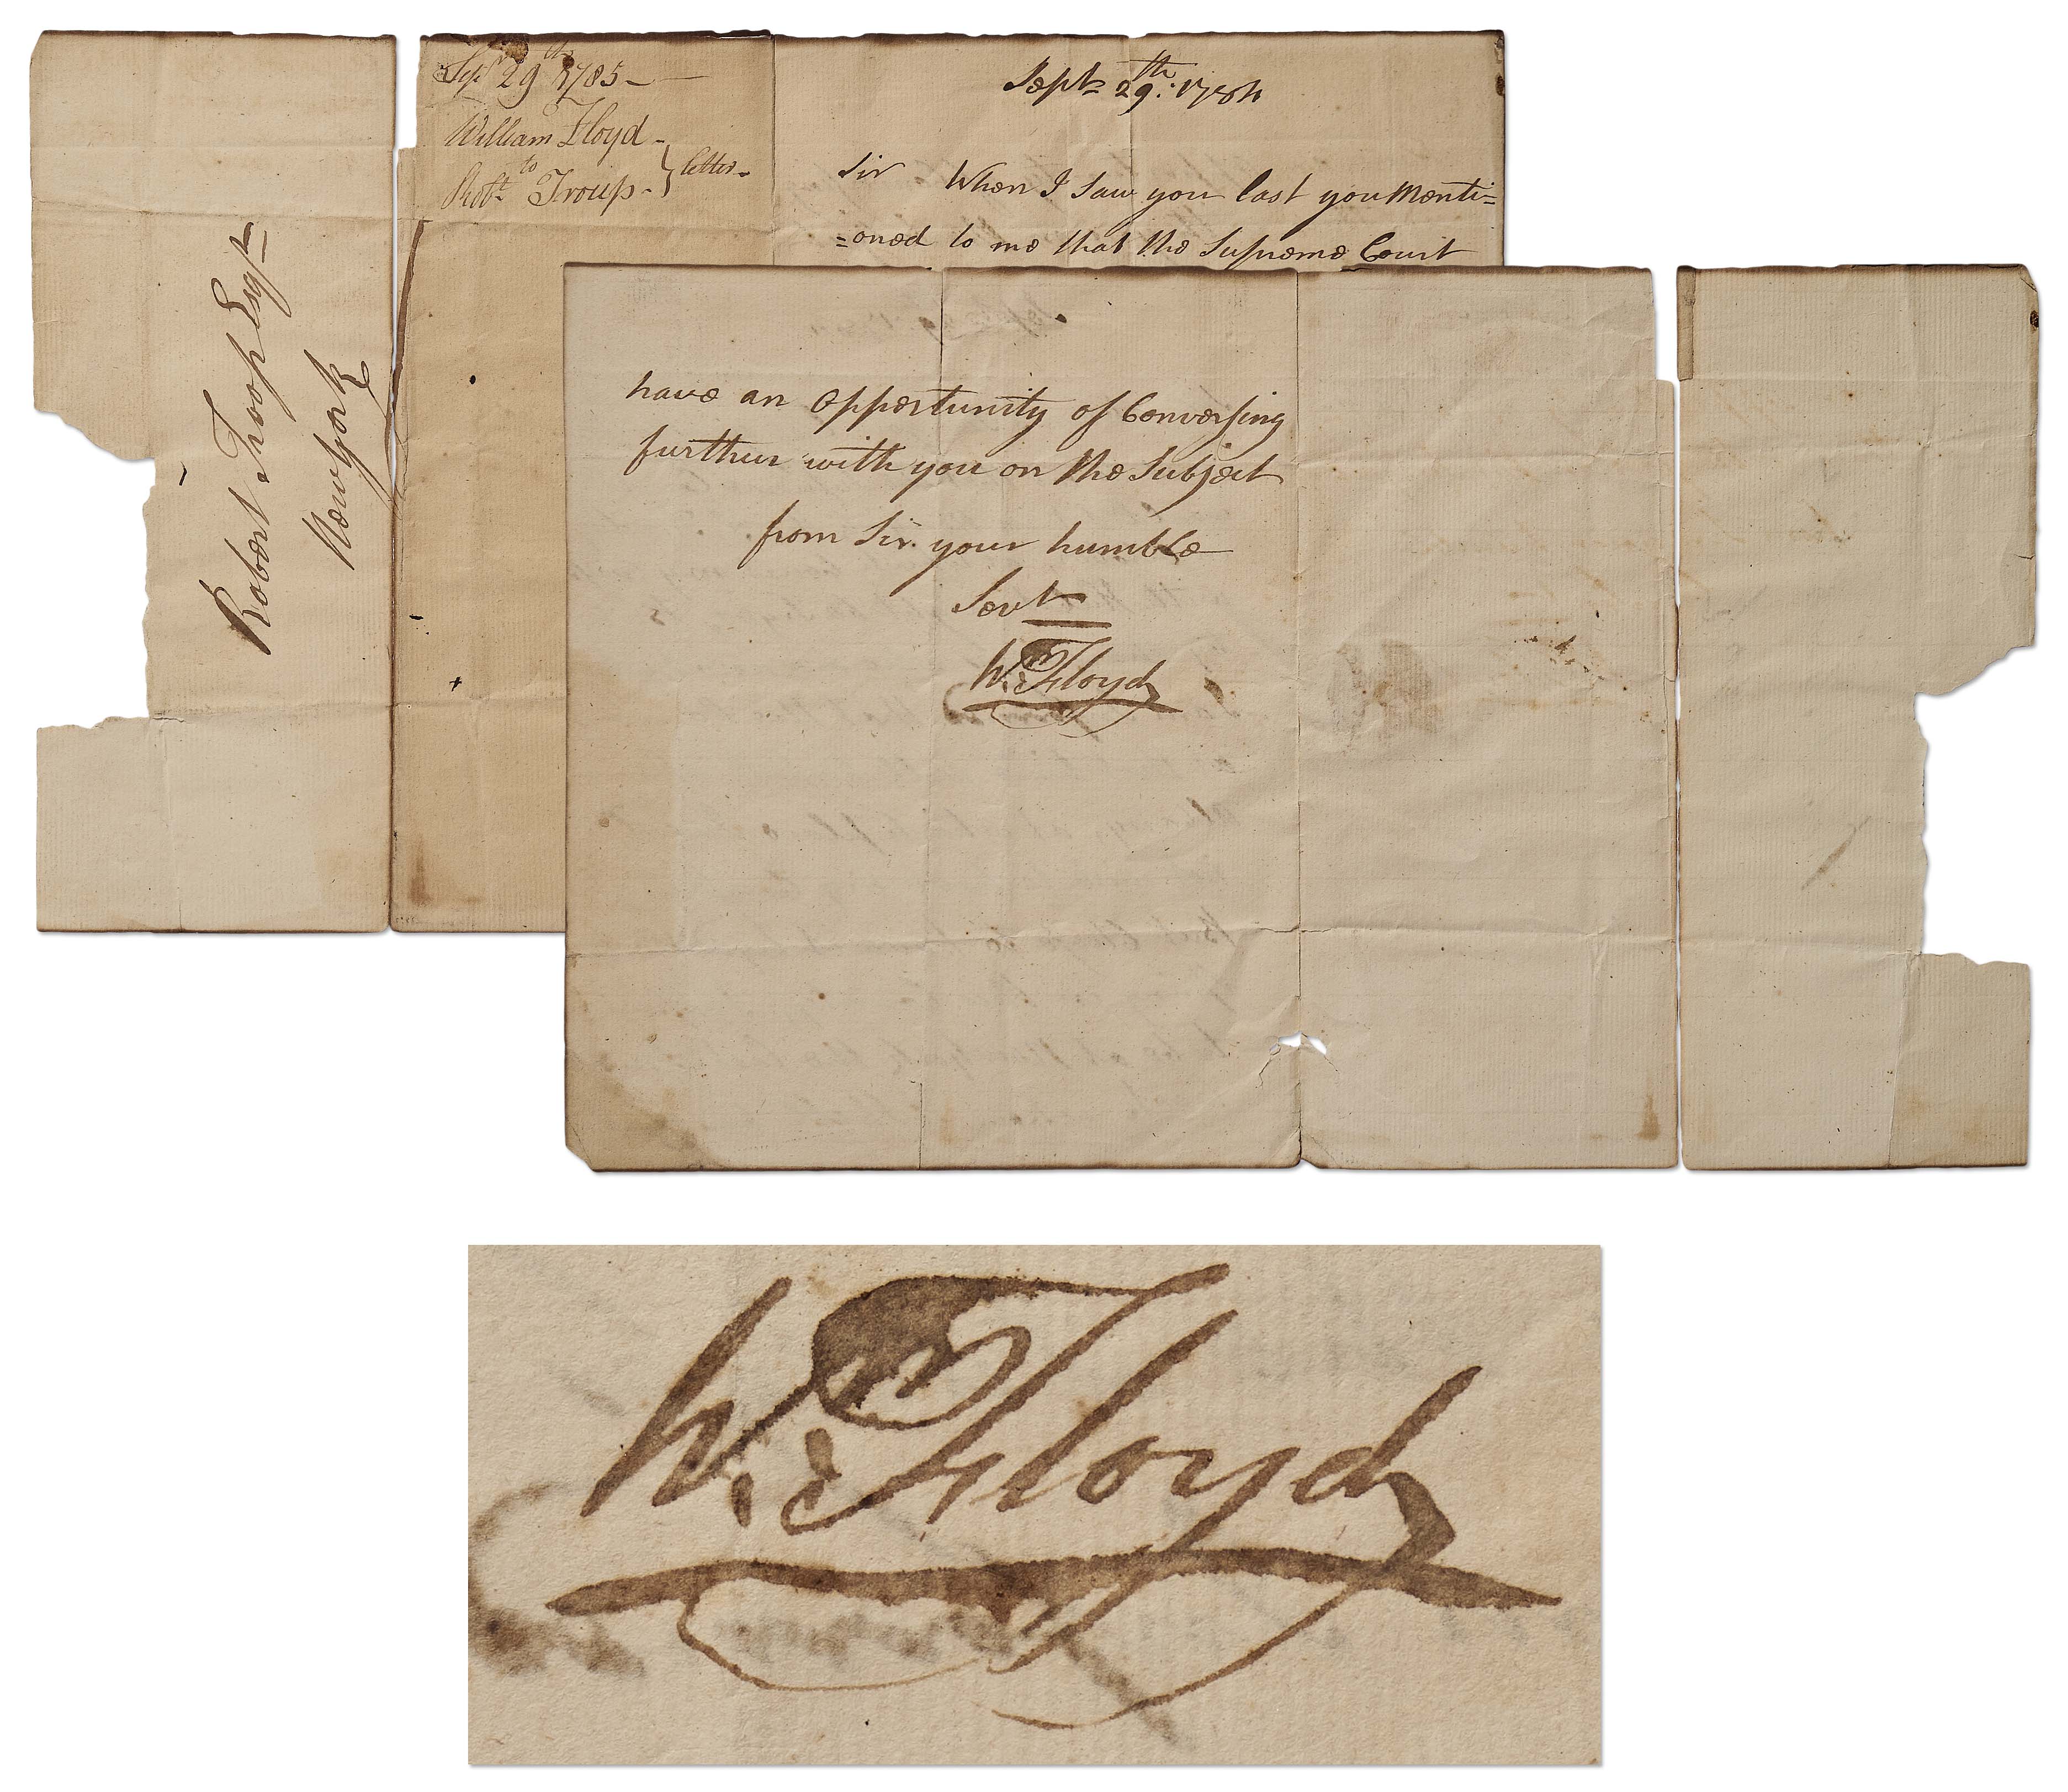 Sept 29th 1785 —
William Floyd -
to
Robt Troup - } letter -
Septr 29th: 1784
Sir When I Saw you last you Menti=
=oned to me that the Supreme Court
Robert Troop Esqr
New York
have an Oppertunity of Conversing
further with you on the Subject
from Sir your humble
Sevt
Wm Floyd
Wm Floyd